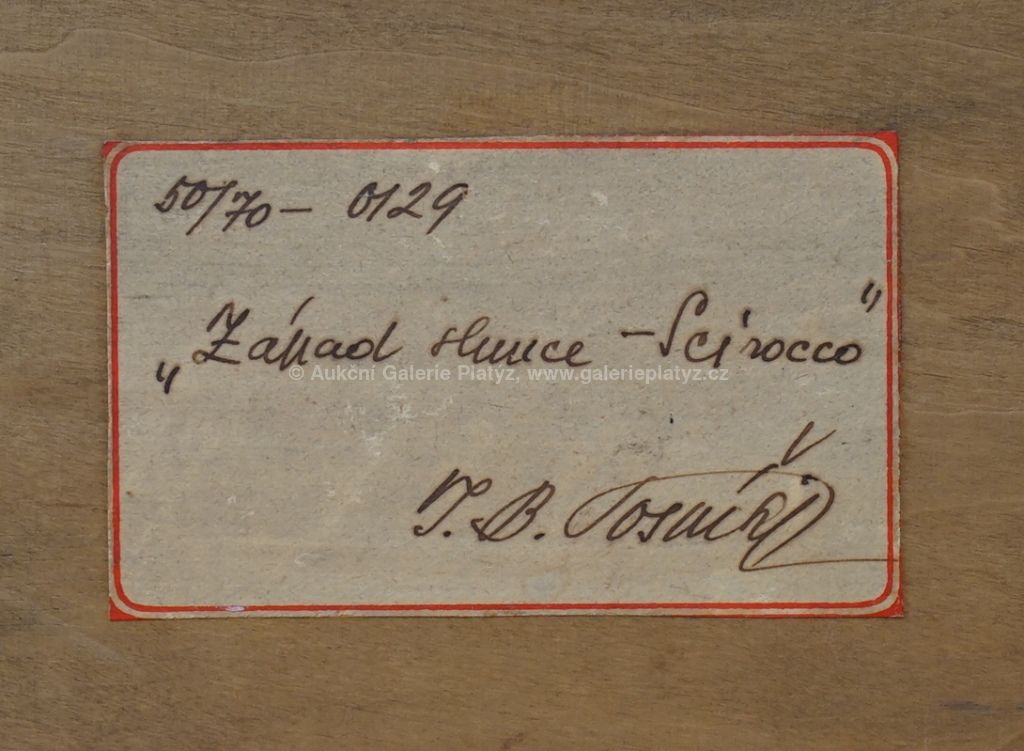 50/70 – 0129
„Západ slunce – Scirocco"
© Aukční Galerie Platýz, www.galerieplatyz.cz
J. B.